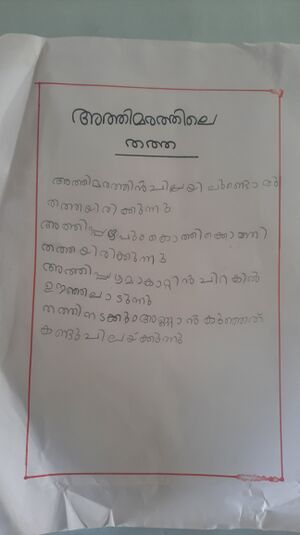 അത്തിമരത്തിലെ
തത്ത
അത്തിമരത്തിൻചില്ലയി ലുണ്ടൊരു
തത്തയിരിക്കുന്നു
അത്തിപ്പഴപോലും കൊത്തിക്കൊണ്ടേ
തത്തയിരിക്കുന്നു
അത്തിപ്പഴമാകാറ്റിൻ ചിറകിൽ
ഊഞ്ഞലാ ടുന്നു
തത്തിനടക്കും അണ്ണാൻ കുഞ്ഞത്
കണ്ടുചിലയ്ക്കുന്നു